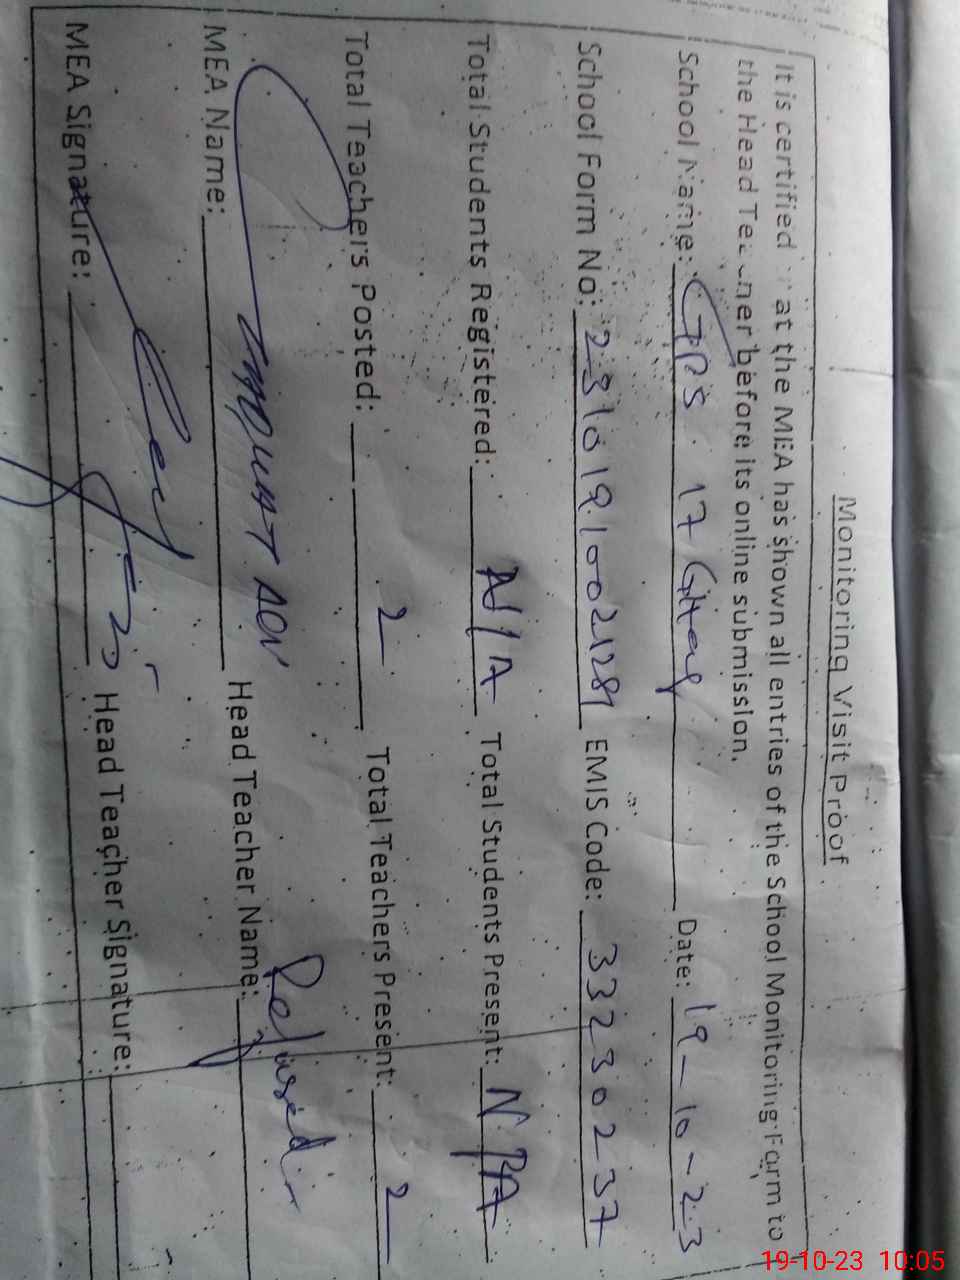 Monitoring Visit Proof
It is certified at the MEA has shown all entries of the School Monitoring Form to
the Head Teacher before its online submission.
School Name: GPS 17 Date: 19-10-23
School Form No: EMIS Code: 33230237
Total Students Registered: N/A Total Students Present: N/A
Total Teachers Posted: 2 Total Teachers Present: 2
MEA Name: Head Teacher Name: Refused
MEA Signature: Head Teacher Signature:
19-10-23 10:05